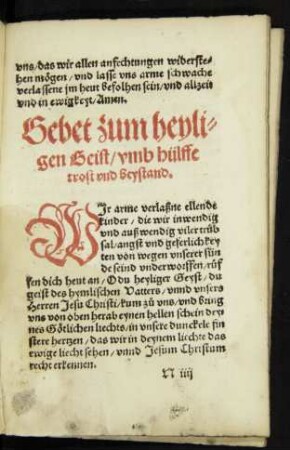 vns/das wir allen anfechtungen widerste-
hen mögen/vnd lasse vns arme schwache
verlassene jm heut befolhen sein/vnd allzeit
vnd in ewigkeyt/Amen.
Gebet zum heyli-
gen Geist/vmb hülffe
trost vnd beystand.
WJr arme verlaßne ellende
kinder/die wir inwendig
vnd außwendig viler trüb
sal/angst vnd geferlichkey
ten von wegen vnserer sün
de seind vnderworffen/rüf
fen dich heut an/O du heyliger Geyst/du
geist des hymlischen Vatters/vnnd vnsers
Herren Jesu Christi/kum zů vns/vnd bring
vns von oben herab eynen hellen schein dey
nes Götlichen liechts/in vnsere dunckele fin
stere hertzen/das wir in deynem liechte das
ewige liecht sehen/vnnd Jesum Christum
recht erkennen.
N iiij